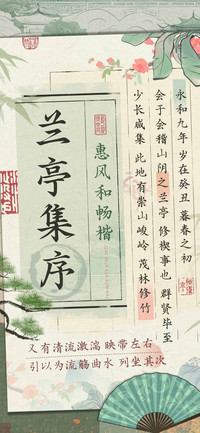 兰亭集序
惠风和畅楷
永和九年 岁在癸丑 暮春之初
会于会稽山阴之兰亭 修禊事也 群贤毕至
少长咸集 此地有崇山峻岭 茂林修竹
又有清流激湍 映带左右
引以为流觞曲水 列坐其次